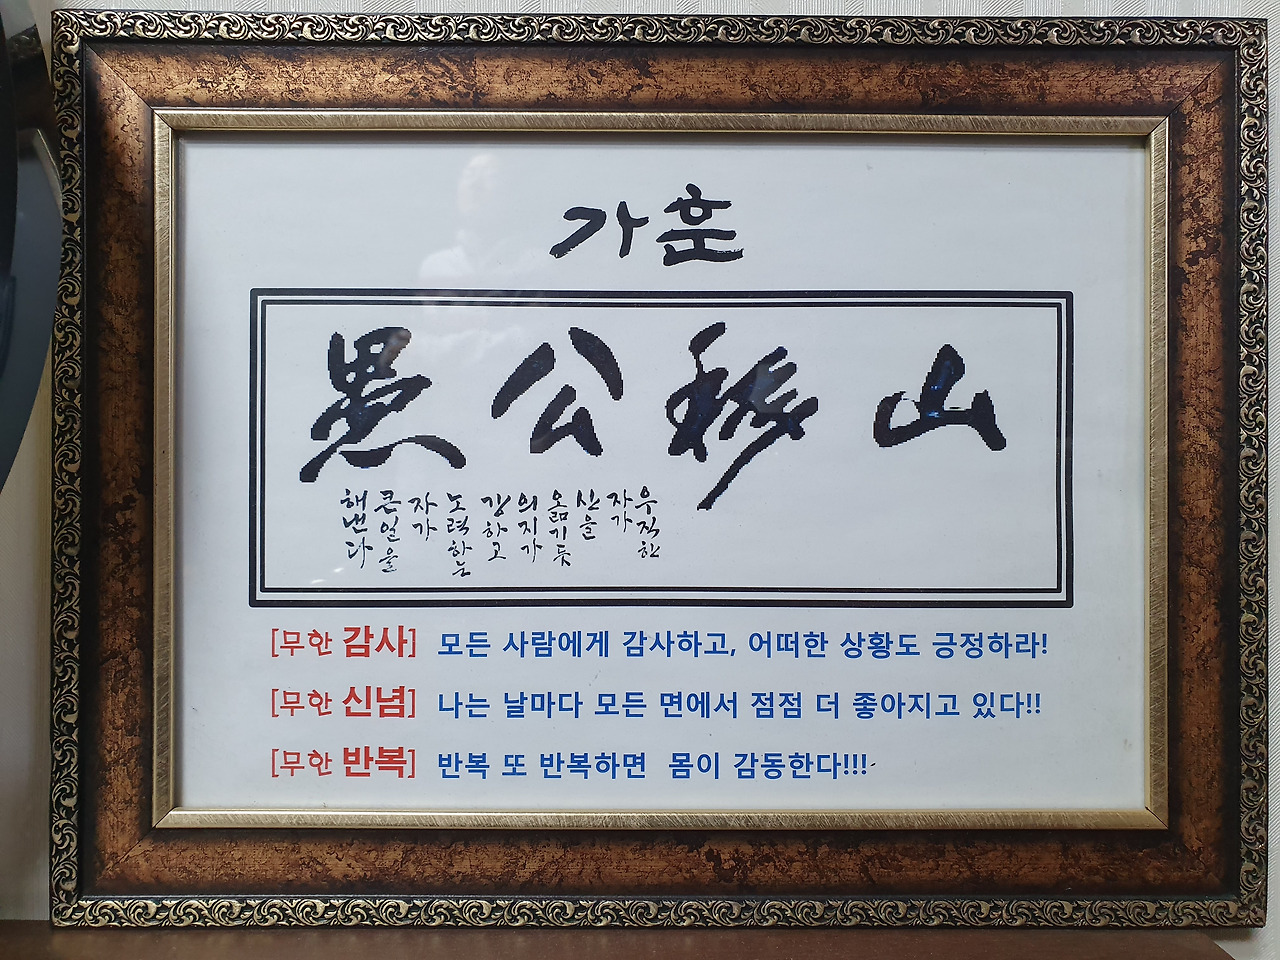 가훈
愚公移山
우직한
자가
산을
옮기듯
의지가
강하고
노력하는
자가
큰일을
해낸다
[무한 감사] 모든 사람에게 감사하고, 어떠한 상황도 긍정하라!
[무한 신념] 나는 날마다 모든 면에서 점점 더 좋아지고 있다!!
[무한 반복] 반복 또 반복하면 몸이 감동한다!!!